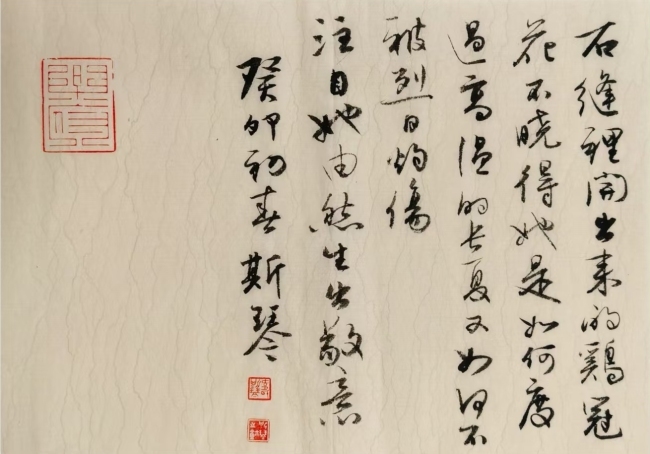 石缝裡開出来的鷄冠
花不晓得她是如何度
过高温的长夏又如何不
被烈日灼傷
注目她由然生出敬意
癸卯初春 斯琴